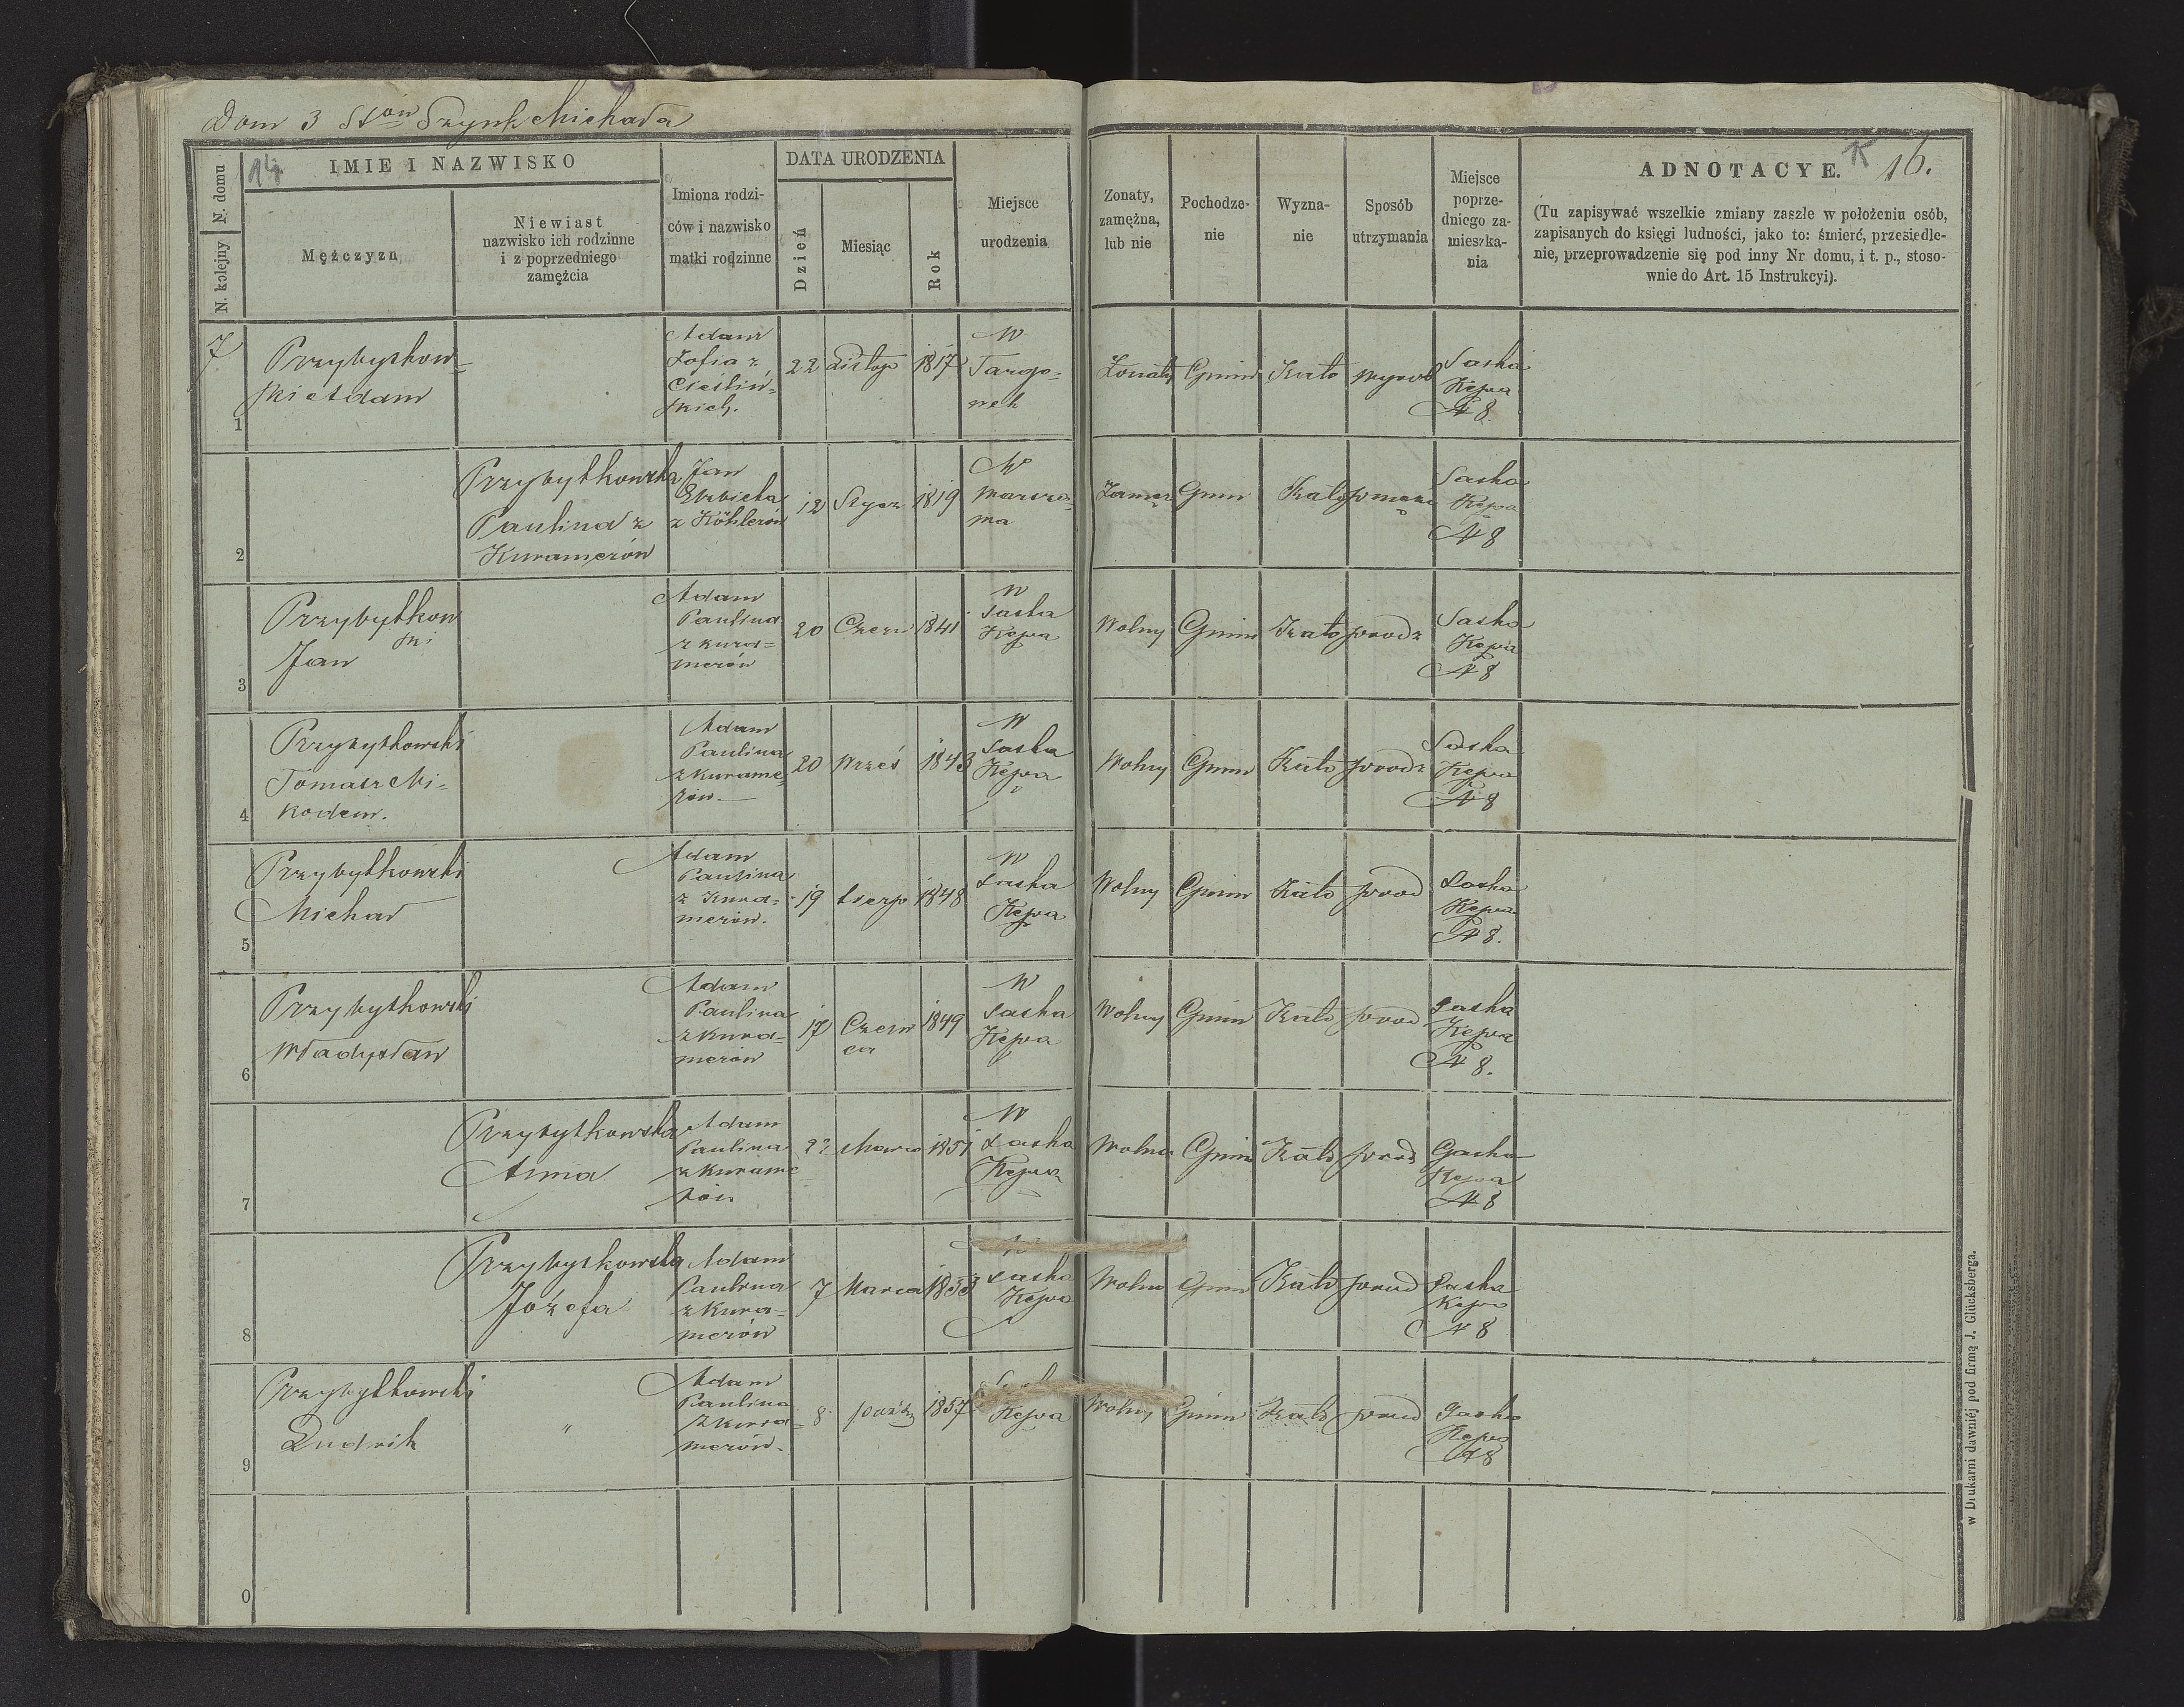 Dom 3 Szynk Michała
14
IMIE I NAZWISKO
DATA URODZENIA
N. kolejny N. domu
Mężczyzn
Niewiast
nazwisko ich rodzinne
i z poprzedniego
zamężcia
Imiona rodzi-
ców i nazwisko
matki rodzinne
Dzień
Miesiąc
Rok
Miejsce
urodzenia
Zonaty,
zamężna,
lub nie
Pochodze-
nie
Wyzna-
nie
Sposób
utrzymania
Miejsce
poprze-
dniego za-
mieszka-
nia
ADNOTACYE.
K 16.
(Tu zapisywać wszelkie zmiany zaszłe w położeniu osób,
zapisanych do księgi ludności, jako to: śmierć, przesiedle-
nie, przeprowadzenie się pod inny Nr domu, i t. p., stoso-
wnie do Art. 15 Instrukcyi).
7
1
Przybytkow-
ski Adam
Adam
Zofia z
Cieśliń-
skich.
22
Listop
1817
W
Targo-
wek
Żonaty
Gmin
Kato
wyrob
Saska
Kępa
N 8.
2
Przybytkowska
Paulina z
Kuramerów
Jan
Elżbieta
z Köhlerów
12
Stycz
1819
W
Warsza-
wa
Zamęż
Gmin
Kato
Saska
Kępa
N 8
3
Przybytkow
ski
Jan
Adam
Paulina
z Kura-
merów
20
Czerw
1841
W
Saska
Kępa
Wolny
Gmin
Kato
Saska
Kępa
N 8
4
Przybytkowski
Tomasz Ni-
kodem.
Adam
Paulina
z Kurame-
rów
20
Wrześ
1843
W
Saska
Kępa
Wolny
Gmin
Kato
Saska
Kępa
N 8
5
Przybytkowski
Michał
Adam
Paulina
z Kura-
merów.
19
Sierp
1848
W
Saska
Kępa
Wolny
Gmin
Kato
Saska
Kępa
N 8.
6
Przybytkowski
Władysław
Adam
Paulina
z Kura-
merów
17
Czerw
ca
1849
W
Saska
Kępa
Wolny
Gmin
Kato
Saska
Kępa
N 8.
7
Przybytkowska
Anna
Adam
Paulina
z Kurame
rów
22
Marca
1851
W
Saska
Kępa
Wolna
Gmin
Kato
Saska
Kępa
N 8
8
Przybytkowska
Józefa
Adam
Paulina
z Kura-
merów
7
Marca
1853
W
Saska
Kępa
Wolna
Gmin
Kato
Saska
Kępa
N 8
9
Przybytkowski
Ludwik
"
Adam
Paulina
z Kura-
merów.
8
paźdz
1857
Kępa
Wolny
Gmin
Kato
Saska
Kępa
N 8
0
w Drukarni dawniéj pod firmą J. Glücksberga.